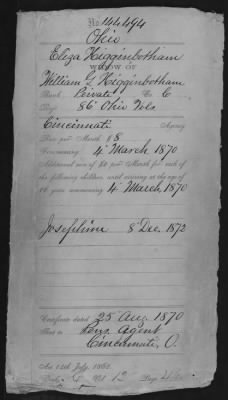 No. 144494
Ohio
Eliza Higginbotham
WIDOW OF
William G. Higginbotham
Rank, Private Co. C
Regt. 86" Ohio Vols
Cincinnati Agency
Rate per Month $8
Commencing 4 March 1870
Additional sum of $2 per Month for each of
the following children, until arriving at the age of
16 years, commencing 4 March 1870
Josephine 8 Dec. 1872
Certificate dated 25 Aug 1870
Sent to Pens. Agent
Cincinnati, O.
Act 14th July, 1862.
Vol
Page